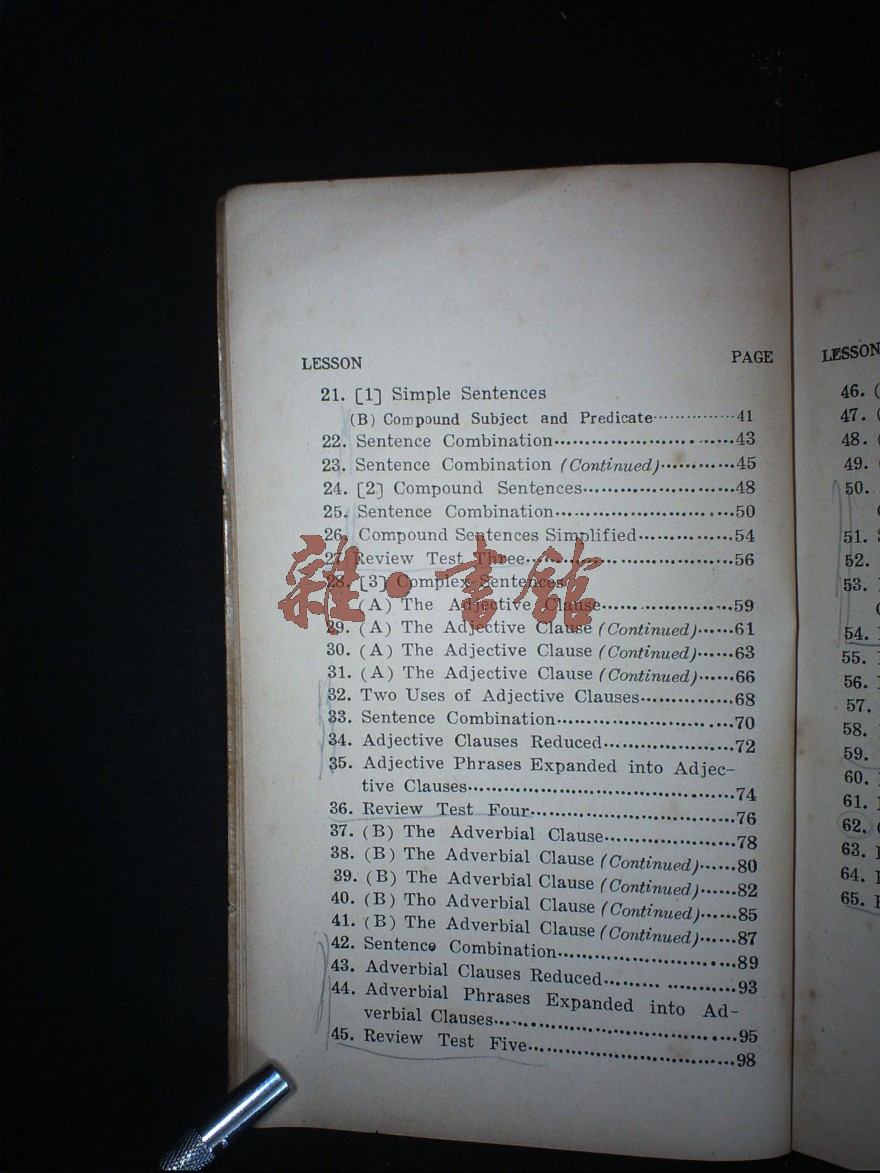 LESSON PAGE
21. [1] Simple Sentences
(B) Compound Subject and Predicate···············41
22. Sentence Combination·····························43
23. Sentence Combination (Continued)············45
24. [2] Compound Sentences························48
25. Sentence Combination·····························50
26. Compound Sentences Simplified···············54
27 Review Test Three·································56
28. [3] Complex Sentences
(A) The Adjective Clause·····················59
29. (A) The Adjective Clause (Continued)······61
30. (A) The Adjective Clause (Continued)······63
31. (A) The Adjective Clause (Continued)······66
32. Two Uses of Adjective Clauses···············68
33. Sentence Combination·····························70
34. Adjective Clauses Reduced·····················72
35. Adjective Phrases Expanded into Adjec-
tive Clauses··········································74
36. Review Test Four·································76
37. (B) The Adverbial Clause·····················78
38. (B) The Adverbial Clause (Continued)······80
39. (B) The Adverbial Clause (Continued)······82
40. (B) Tho Adverbial Clause (Continued)······85
41. (B) The Adverbial Clause (Continued)······87
42. Sentence Combination·····························89
43. Adverbial Clauses Reduced·····················93
44. Adverbial Phrases Expanded into Ad-
verbial Clauses·······································95
45. Review Test Five·································98
雜·書館
LESSON
46. (
47. (
48. (
49.
50.
51.
52.
53.
54.
55.
56.
57.
58.
59.
60.
61.
62.
63.
64.
65.